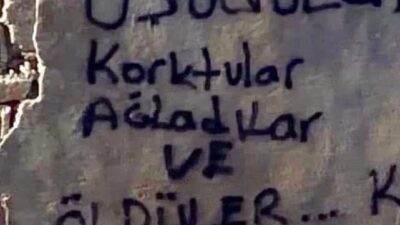 Korktular
AĞLadıLar
VE
ÖLDÜLER... K